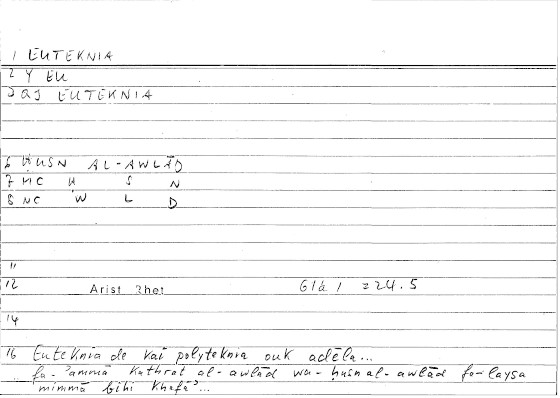 1 EUTEKNIA
2 Y EU
3 QJ EUTEKNIA
6 ḤUSN AL-AWLĀD
7 MC Ḥ S N
8 NC W L D
11
12 Arist Rhet 61a1 = 24.5
14
16 Euteknia de kai polyteknia ouk adēla...
fa-'ammā kathrat al-awlād wa-ḥusn al-awlād fa-laysa
mimmā bihi khafā'...